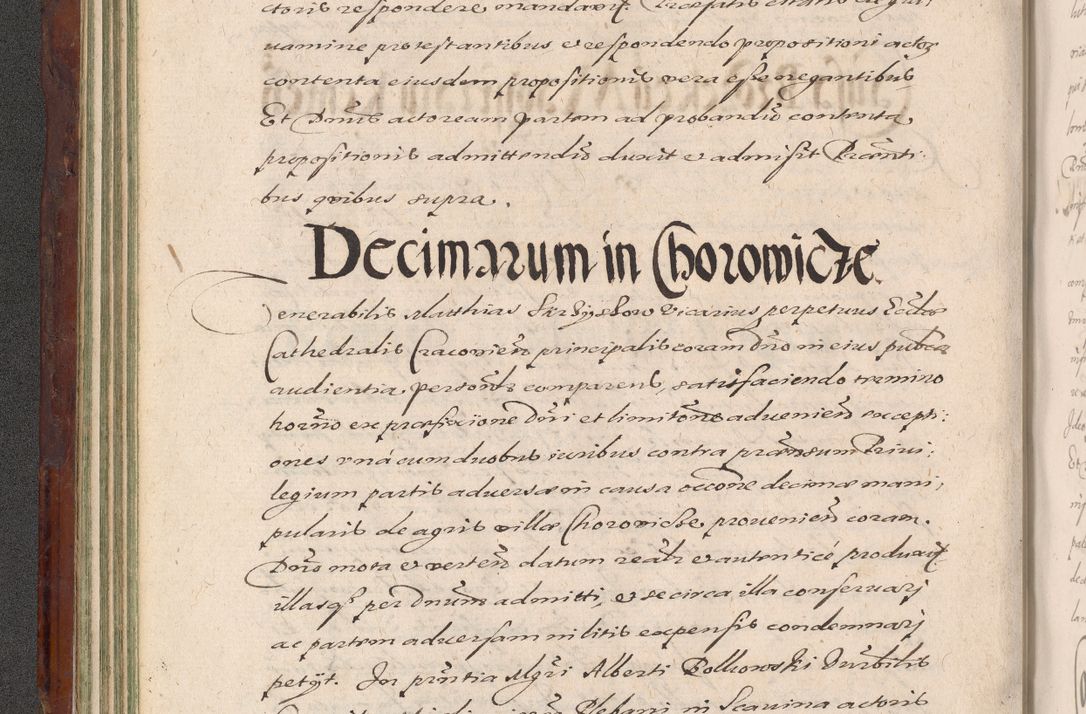 ctoris respondere mandavit. Praefatis
uamine protestantibus et respondendo propositioni actor
contenta eiusdem propositionis vera esse negantibus
Et Dnus actoream partem ad probandū contenta
propositionis admittendū duxit et admisit Pranti:
bus quibus supra.
Decimarum in Chorowicze
Venerabilis Matthias vicarius perpetuus Eccłae
Cathedralis Cracovien principalis coram Dno in eius publica
audientia, personłr comparens, satisfaciendo termino
horno ex praefixione Dni et limitone advenien excepti:
ones una cum duobus iuribus contra pransum Privi:
legium partis adversae in causa occone decimae mani:
pularis de agris villae Chorowicze provenien coram.
Dno mota et verten datum realr et autenticé produxit
illasq per Dnum admitti, et se circa illa conservarj
ac partem adversam in litis expensis condemnarj
petÿt. In pntia Mgri Alberti Durbilis
Plebani in Scavina actoris